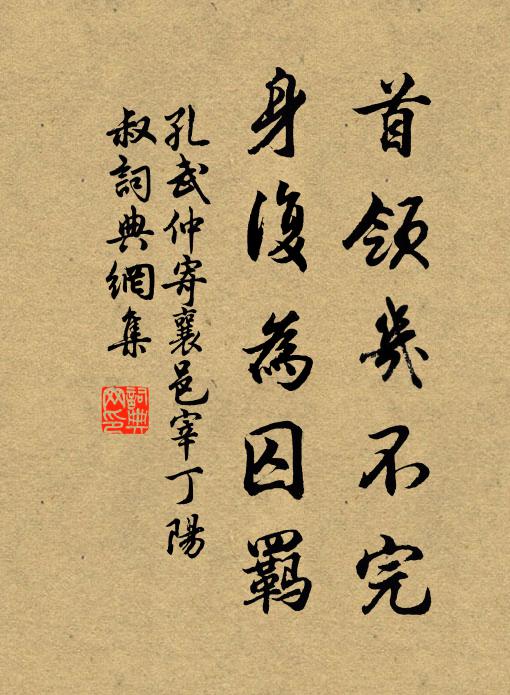 首領幾不完
身復為囚羈
孔武仲寄襄邑宰丁陽
叔詞典網集
詞典
网印